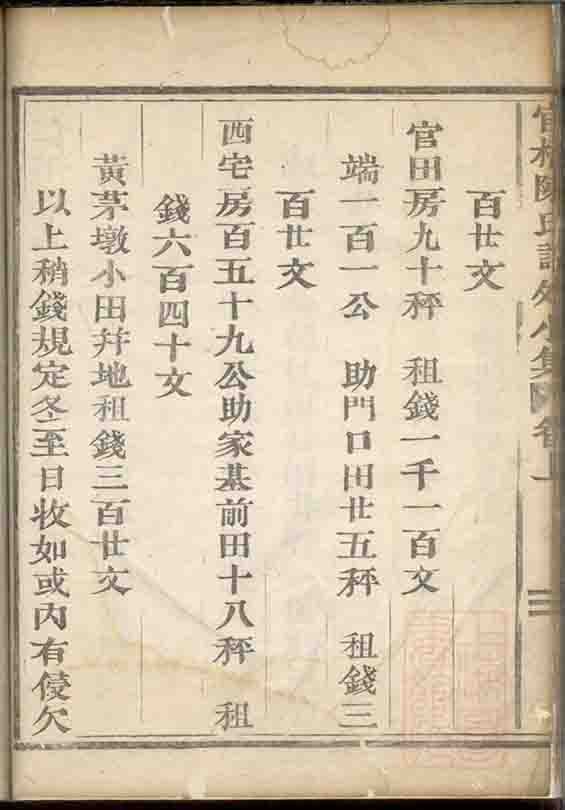 官村陳氏譜外小集 卷上
百廿文
官田房九十秤 租錢一千一百文
端一百一公 助門口田廿五秤 租錢三
百廿文
西宅房百五十九公助家墓前田十八秤 租
錢六百四十文
黃茅墩小田幷地租錢三百廿文
以上稍錢規定冬至日收如或內有侵欠